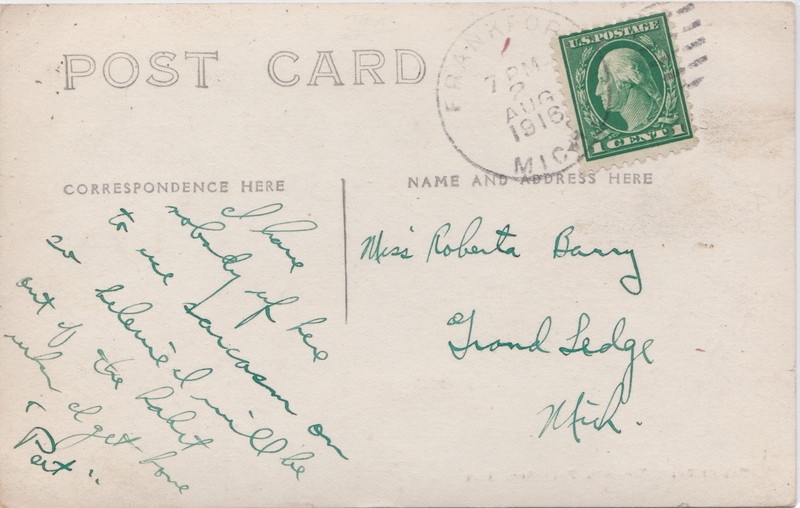 POST CARD
FRANKFOR
7 PM
2
AUG
1916
MICH
U.S. POSTAGE
1 CENT 1
CORRESPONDENCE HERE
NAME AND ADDRESS HERE
I have
nobody up here
to use sarcasm on
so beleive I will be
out of the habit
when I get home
Miss Roberta Barry
Grand Ledge
Mich.